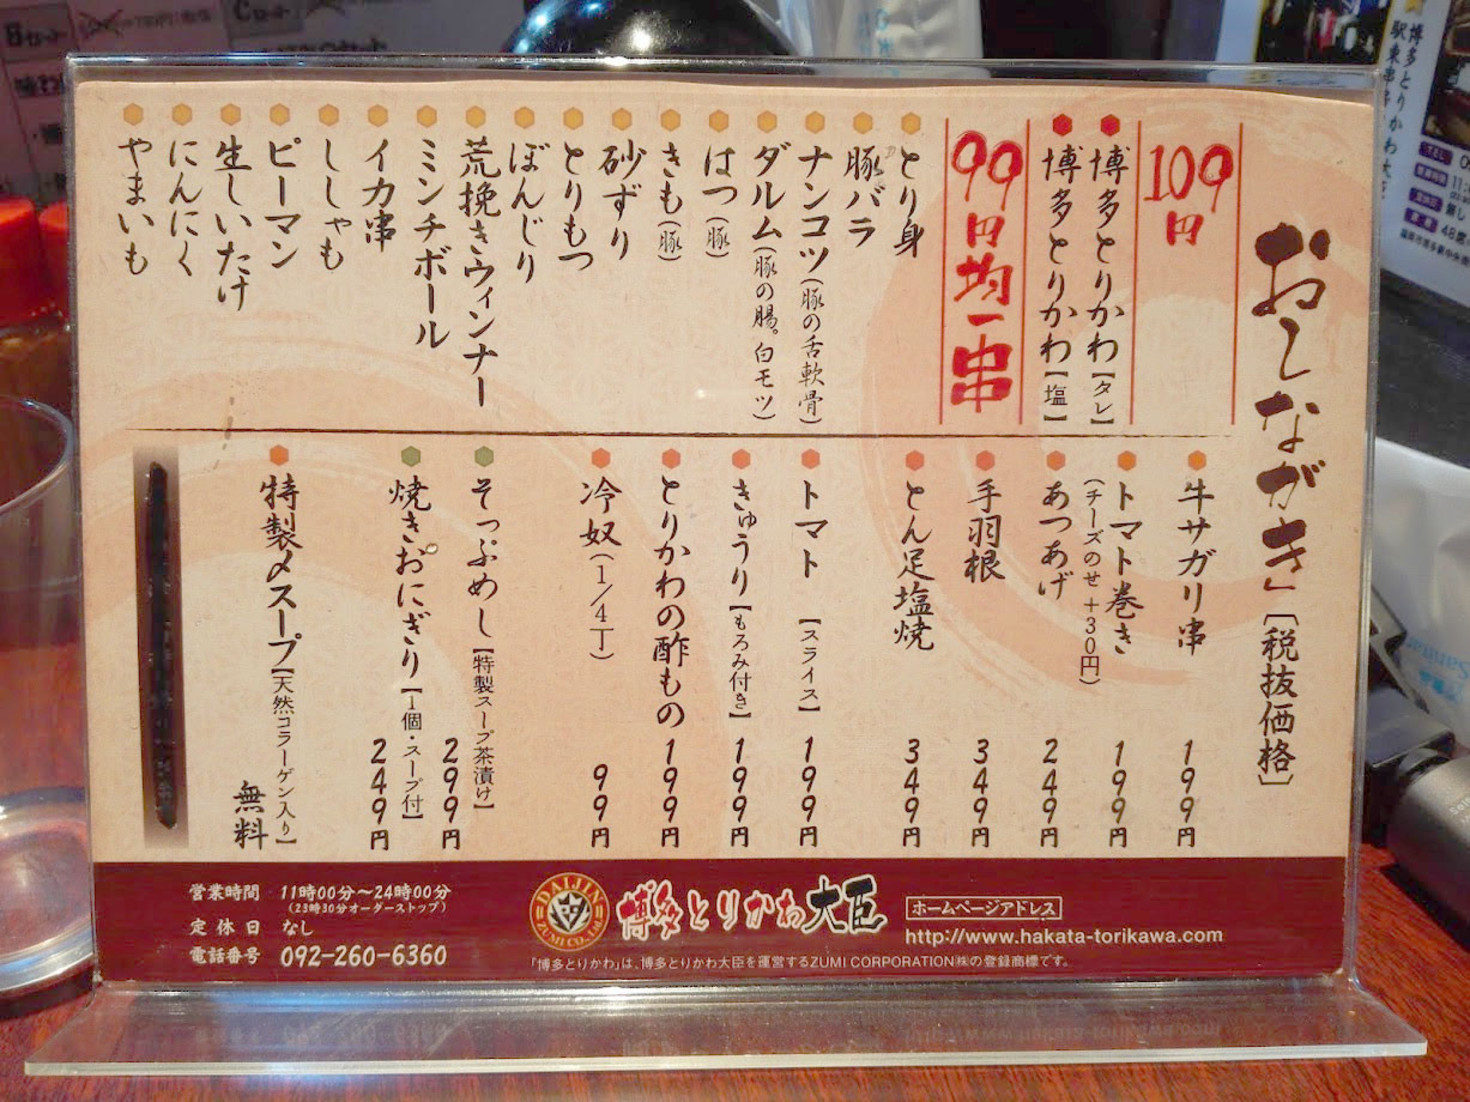 おしながき［税抜価格］
109円
博多とりかわ【タレ】
博多とりかわ【塩】
99円均一串
とり身
豚バラ
ナンコツ（豚の舌軟骨）
ダルム（豚の腸。白モツ）
はつ（豚）
きも（豚）
砂ずり
とりもつ
ぼんじり
荒挽きウィンナー
ミンチボール
イカ串
ししゃも
ピーマン
生しいたけ
にんにく
やまいも
牛サガリ串 199円
トマト巻き 199円
（チーズのせ＋30円）
あつあげ 249円
手羽根 349円
とん足塩焼 349円
トマト【スライス】 199円
きゅうり【もろみ付き】 199円
とりかわの酢もの 199円
冷奴（1/4丁） 99円
そっぷめし【特製スープ茶漬け】 299円
焼きおにぎり【1個・スープ付】 249円
特製〆スープ【天然コラーゲン入り】 無料
営業時間 11時00分～24時00分
（23時30分オーダーストップ）
定休日 なし
電話番号 092-260-6360
DAIJIN
ZUMI CO., Ltd
博多とりかわ大臣
ホームページアドレス
http://www.hakata-torikawa.com
「博多とりかわ」は、博多とりかわ大臣を運営するZUMI CORPORATION㈱の登録商標です。
博多とりかわ大臣